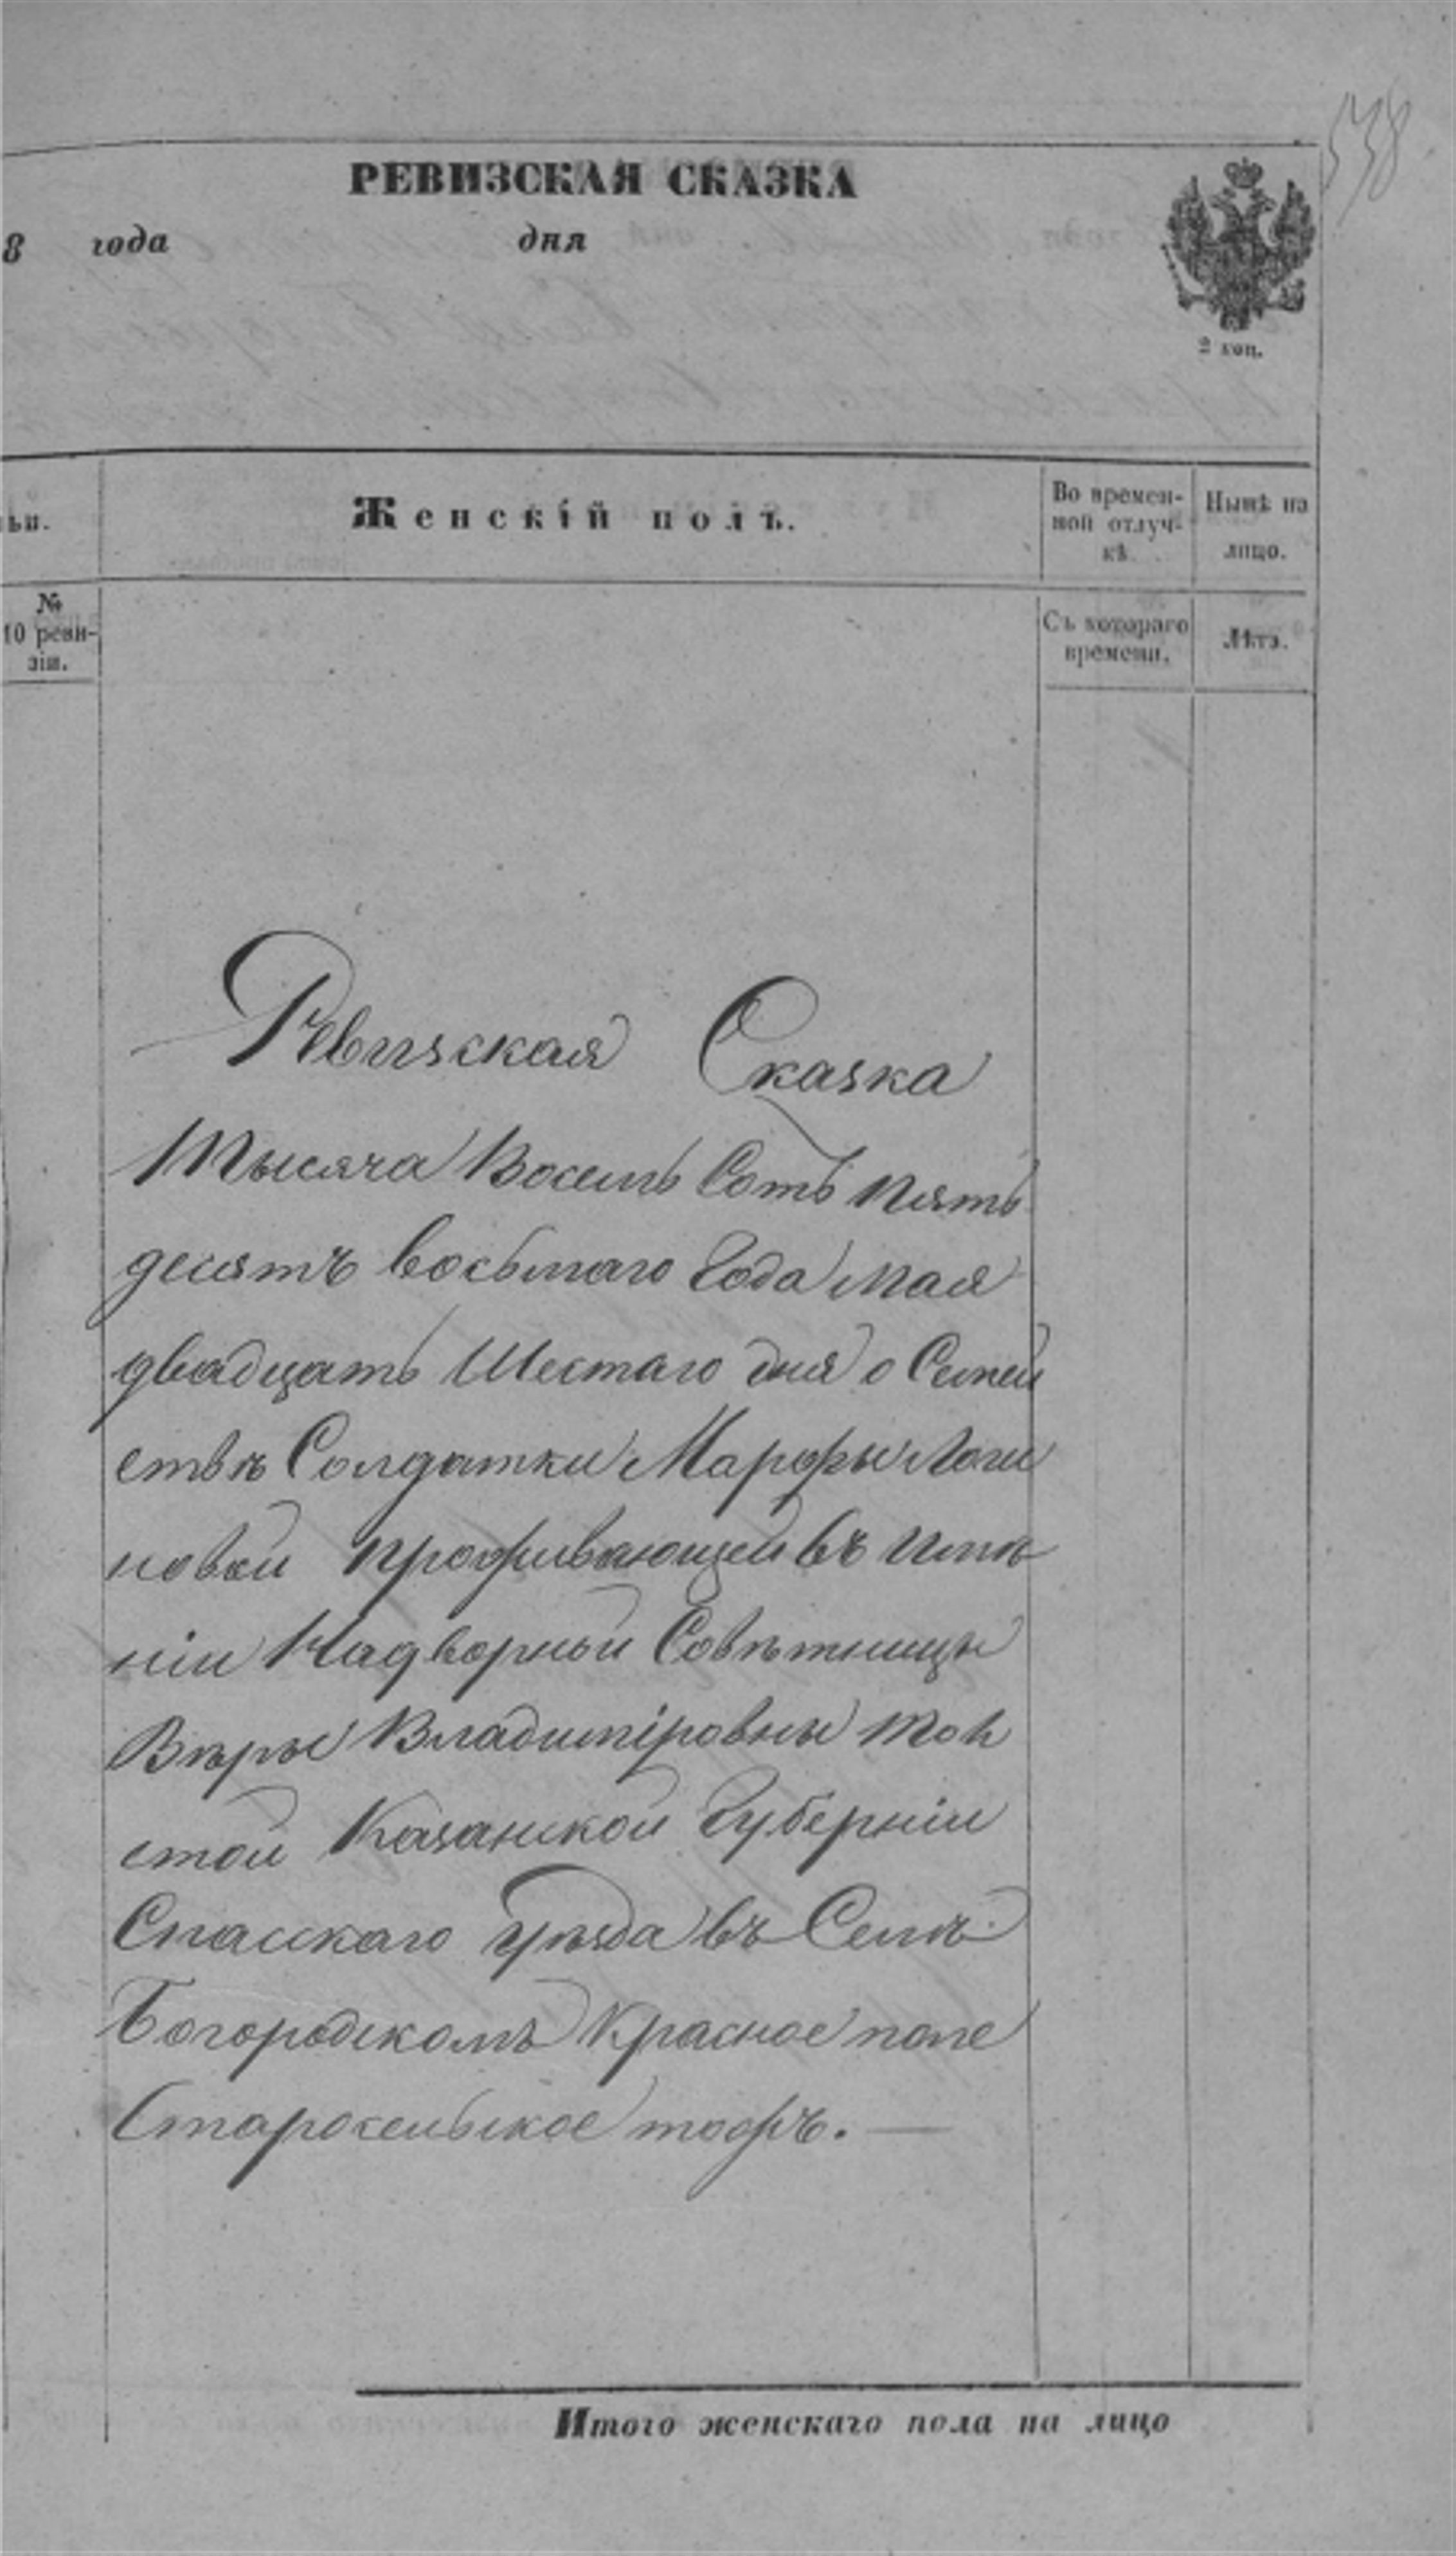 538
РЕВИЗСКАЯ СКАЗКА
8 года дня
2 коп.
ьи. Женскій полъ. Во времен-ной отлуч-кѣ. Нынѣ на лицо.
№ 10 реви-зіи. Съ котораго времени. Лѣта.
Ревизская Сказка
Тысяча Восемь Сотъ Пять
десятъ восьмаго Года Мая
двадцать Шестаго дня о Семей
ствѣ Солдатки Марфы Логи
новой проживающей въ Имѣ
ніи Надворной Совѣтницы
Вѣры Владиміровны Тол
стой Казанской Губерніи
Спасскаго уѣзда въ Селѣ
Богородскомъ Красное поле
Старосельское тожъ. —
Итого женскаго пола на лицо